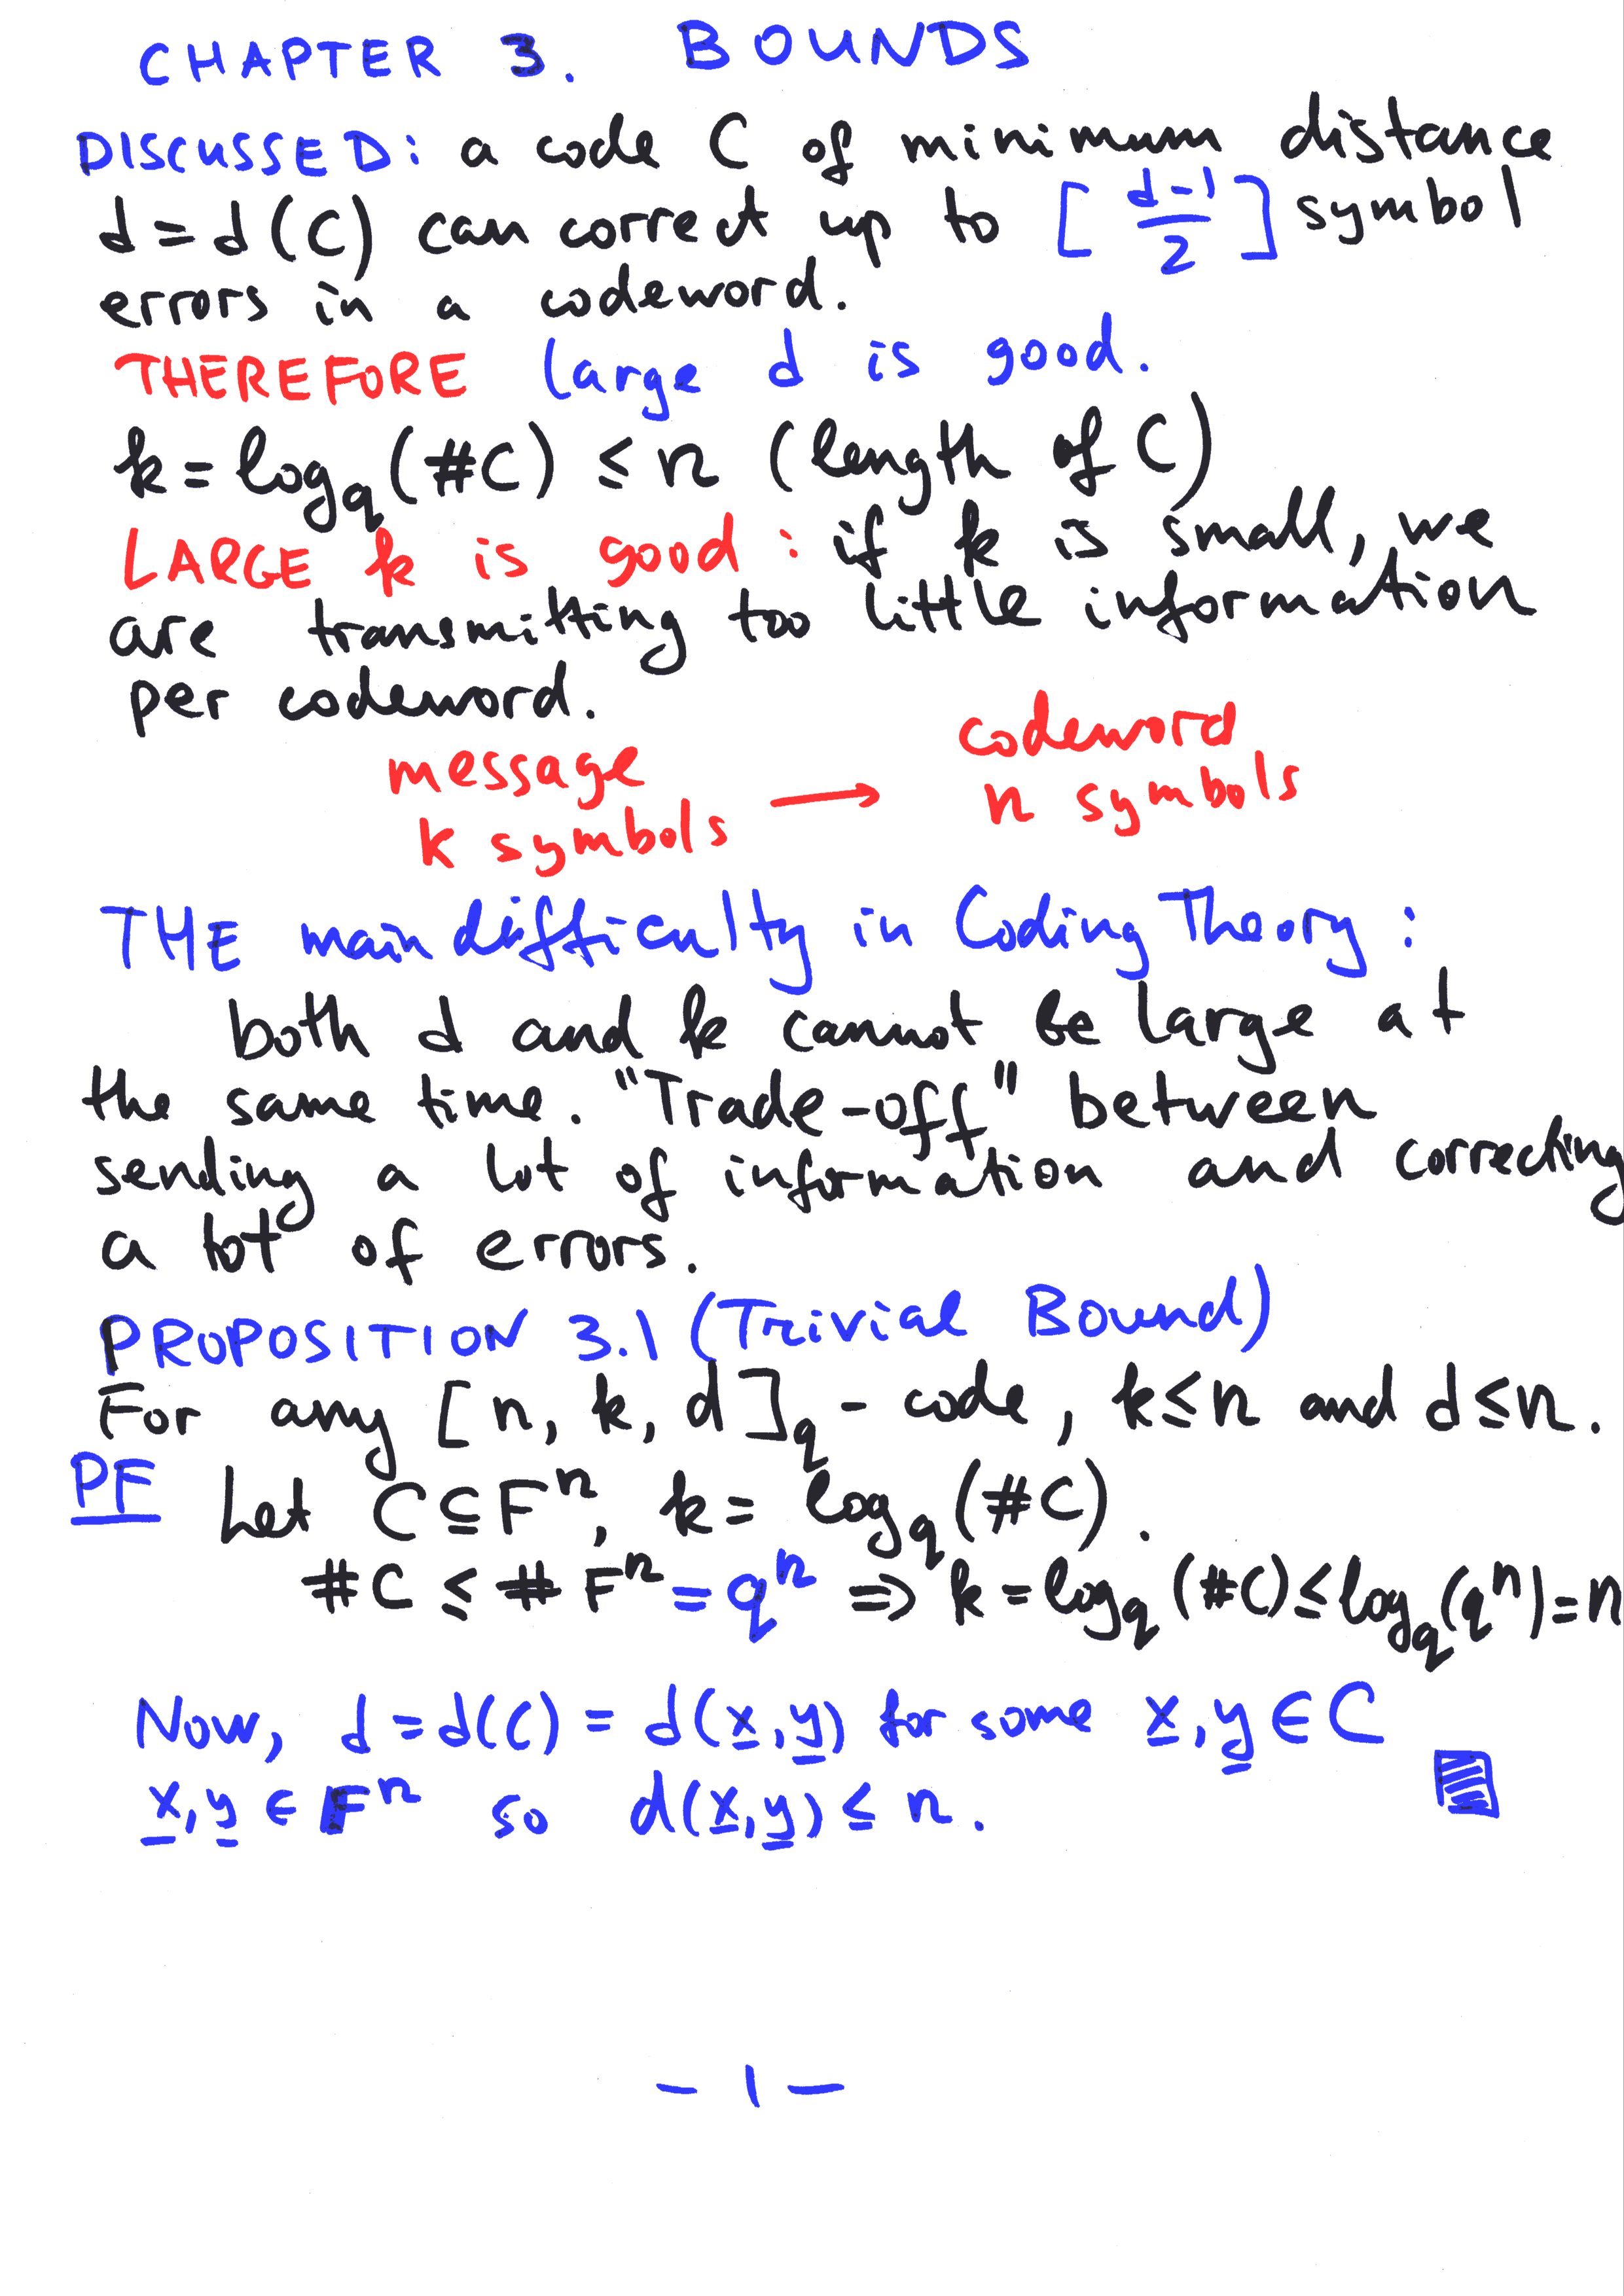 CHAPTER 3. BOUNDS
DISCUSSED: a code C of minimum distance
d = d(C) can correct up to [ (d-1)/2 ] symbol
errors in a codeword.
THEREFORE large d is good.
k = log_q (#C) ≤ n (length of C)
LARGE k is good : if k is small, we
are transmitting too little information
per codeword.
message → codeword
k symbols n symbols
THE main difficulty in Coding Theory :
both d and k cannot be large at
the same time. "Trade-off" between
sending a lot of information and correcting
a lot of errors.
PROPOSITION 3.1 (Trivial Bound)
For any [n, k, d]_q - code, k ≤ n and d ≤ n.
PF Let C ⊆ F^n, k = log_q (#C).
#C ≤ # F^n = q^n ⇒ k = log_q (#C) ≤ log_q (q^n) = n
Now, d = d(C) = d(x, y) for some x, y ∈ C
x, y ∈ F^n so d(x, y) ≤ n.
- 1 -